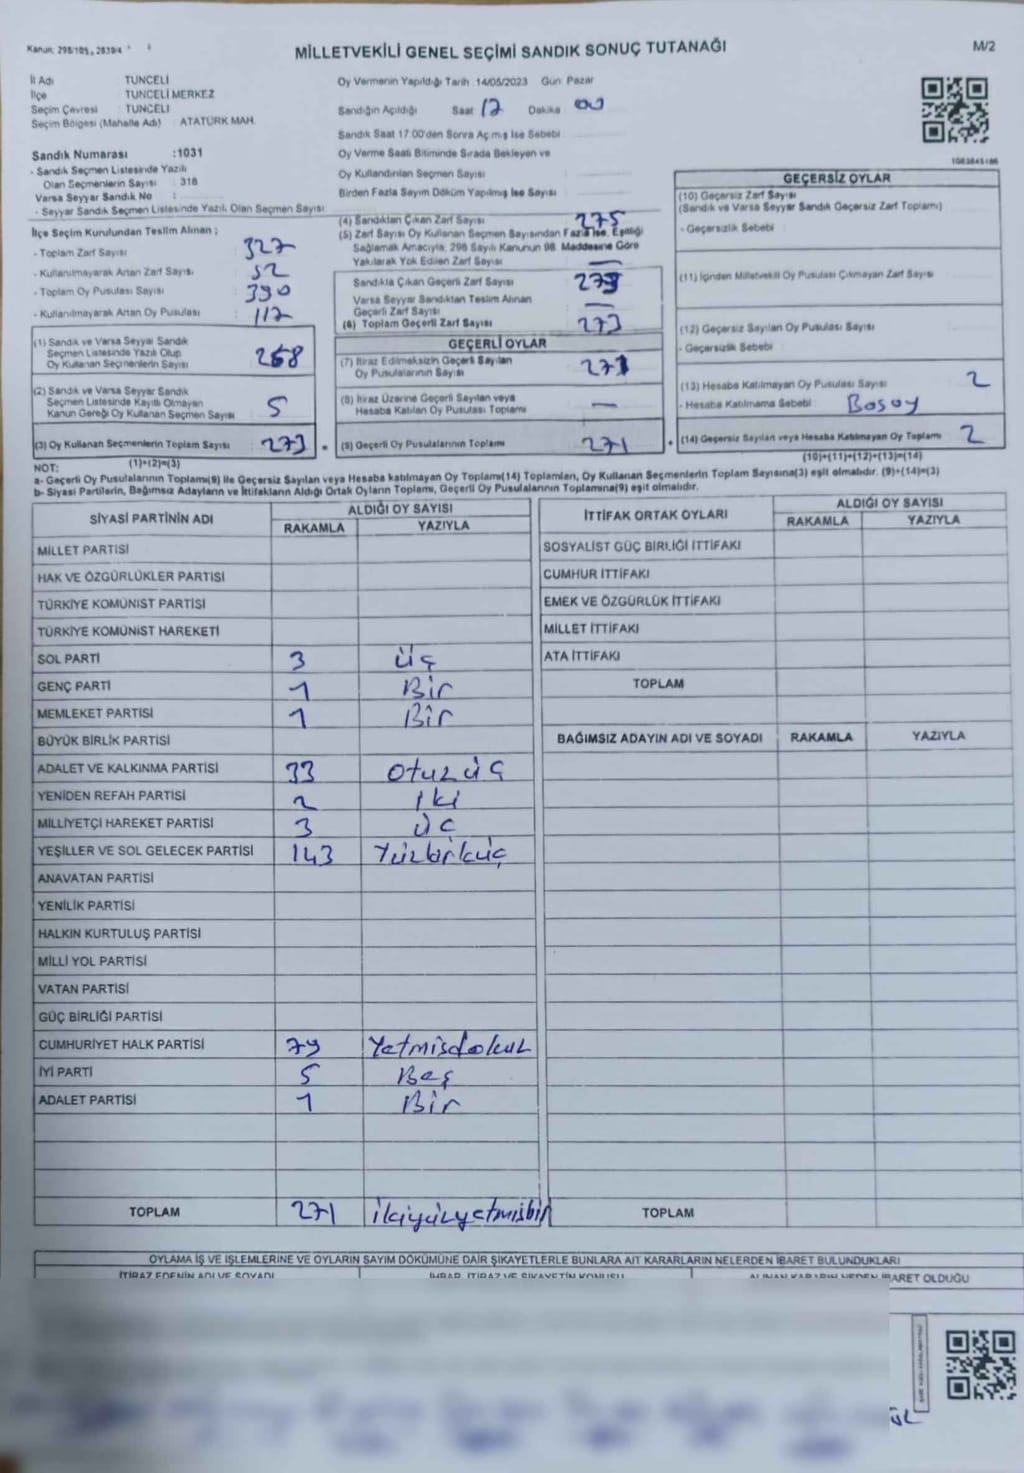 Kanun: 298/105, 2839/4
MİLLETVEKİLİ GENEL SEÇİMİ SANDIK SONUÇ TUTANAĞI
M/2
İl Adı TUNCELİ
İlçe TUNCELİ MERKEZ
Seçim Çevresi : TUNCELİ
Seçim Bölgesi (Mahalle Adı) : ATATÜRK MAH.
Oy Vermenin Yapıldığı Tarih :14/05/2023 Gün: Pazar
Sandığın Açıldığı Saat 17 Dakika 00
Sandık Saat 17:00'den Sonra Açmış İse Sebebi
Oy Verme Saati Bitiminde Sırada Bekleyen ve
Oy Kullandırılan Seçmen Sayısı
Birden Fazla Sayım Döküm Yapılmış İse Sayısı
Sandık Numarası :1031
- Sandık Seçmen Listesinde Yazılı
Olan Seçmenlerin Sayısı : 318
Varsa Seyyar Sandık No :
- Seyyar Sandık Seçmen Listesinde Yazılı Olan Seçmen Sayısı :
İlçe Seçim Kurulundan Teslim Alınan ;
- Toplam Zarf Sayısı 327
- Kullanılmayarak Artan Zarf Sayısı 52
- Toplam Oy Pusulası Sayısı 390
- Kullanılmayarak Artan Oy Pusulası 117
(1) Sandık ve Varsa Seyyar Sandık
Seçmen Listesinde Yazılı Olup
Oy Kullanan Seçmenlerin Sayısı 268
(2) Sandık ve Varsa Seyyar Sandık
Seçmen Listesinde Kayıtlı Olmayan
Kanun Gereği Oy Kullanan Seçmen Sayısı 5
(3) Oy Kullanan Seçmenlerin Toplam Sayısı 273
(1)+(2)=(3)
(4) Sandıktan Çıkan Zarf Sayısı 275
(5) Zarf Sayısı Oy Kullanan Seçmen Sayısından Fazla İse, Eşitliği
Sağlamak Amacıyla, 298 Sayılı Kanunun 98. Maddesine Göre
Yakılarak Yok Edilen Zarf Sayısı —
Sandıkta Çıkan Geçerli Zarf Sayısı 273
Varsa Seyyar Sandıktan Teslim Alınan
Geçerli Zarf Sayısı —
(6) Toplam Geçerli Zarf Sayısı 273
GEÇERLİ OYLAR
(7) İtiraz Edilmeksizin Geçerli Sayılan
Oy Pusulalarının Sayısı 271
(8) İtiraz Üzerine Geçerli Sayılan veya
Hesaba Katılan Oy Pusulası Toplamı —
(9) Geçerli Oy Pusulalarının Toplamı 271
GEÇERSİZ OYLAR
(10) Geçersiz Zarf Sayısı
(Sandık ve Varsa Seyyar Sandık Geçersiz Zarf Toplamı)
- Geçersizlik Sebebi
(11) İçinden Milletvekili Oy Pusulası Çıkmayan Zarf Sayısı
(12) Geçersiz Sayılan Oy Pusulası Sayısı
- Geçersizlik Sebebi
(13) Hesaba Katılmayan Oy Pusulası Sayısı 2
- Hesaba Katılmama Sebebi Bosoy
(14) Geçersiz Sayılan veya Hesaba Katılmayan Oy Toplamı 2
(10)+(11)+(12)+(13)=(14)
NOT:
a- Geçerli Oy Pusulalarının Toplamı(9) ile Geçersiz Sayılan veya Hesaba katılmayan Oy Toplamı(14) Toplamları, Oy Kullanan Seçmenlerin Toplam Sayısına(3) eşit olmalıdır. (9)+(14)=(3)
b- Siyasi Partilerin, Bağımsız Adayların ve İttifakların Aldığı Ortak Oyların Toplamı, Geçerli Oy Pusulalarının Toplamına(9) eşit olmalıdır.
SİYASİ PARTİNİN ADI ALDIĞI OY SAYISI
RAKAMLA YAZIYLA
MİLLET PARTİSİ
HAK VE ÖZGÜRLÜKLER PARTİSİ
TÜRKİYE KOMÜNİST PARTİSİ
TÜRKİYE KOMÜNİST HAREKETİ
SOL PARTİ 3 üç
GENÇ PARTİ 1 Bir
MEMLEKET PARTİSİ 1 Bir
BÜYÜK BİRLİK PARTİSİ
ADALET VE KALKINMA PARTİSİ 33 otuzüç
YENİDEN REFAH PARTİSİ 2 iki
MİLLİYETÇİ HAREKET PARTİSİ 3 üç
YEŞİLLER VE SOL GELECEK PARTİSİ 143 Yüzkirküç
ANAVATAN PARTİSİ
YENİLİK PARTİSİ
HALKIN KURTULUŞ PARTİSİ
MİLLİ YOL PARTİSİ
VATAN PARTİSİ
GÜÇ BİRLİĞİ PARTİSİ
CUMHURİYET HALK PARTİSİ 79 Yetmisdokuz
İYİ PARTİ 5 Beş
ADALET PARTİSİ 1 Bir
TOPLAM 271 ikiyüzyetmisbir
İTTİFAK ORTAK OYLARI ALDIĞI OY SAYISI
RAKAMLA YAZIYLA
SOSYALİST GÜÇ BİRLİĞİ İTTİFAKI
CUMHUR İTTİFAKI
EMEK VE ÖZGÜRLÜK İTTİFAKI
MİLLET İTTİFAKI
ATA İTTİFAKI
TOPLAM
BAĞIMSIZ ADAYIN ADI VE SOYADI RAKAMLA YAZIYLA
TOPLAM
OYLAMA İŞ VE İŞLEMLERİNE VE OYLARIN SAYIM DÖKÜMÜNE DAİR ŞİKAYETLERLE BUNLARA AİT KARARLARIN NELERDEN İBARET BULUNDUKLARI
İTİRAZ EDENİN ADI VE SOYADI İHBAR, İTİRAZ VE ŞİKAYETİN KONUSU ALINAN KARARIN NEDEN İBARET OLDUĞU